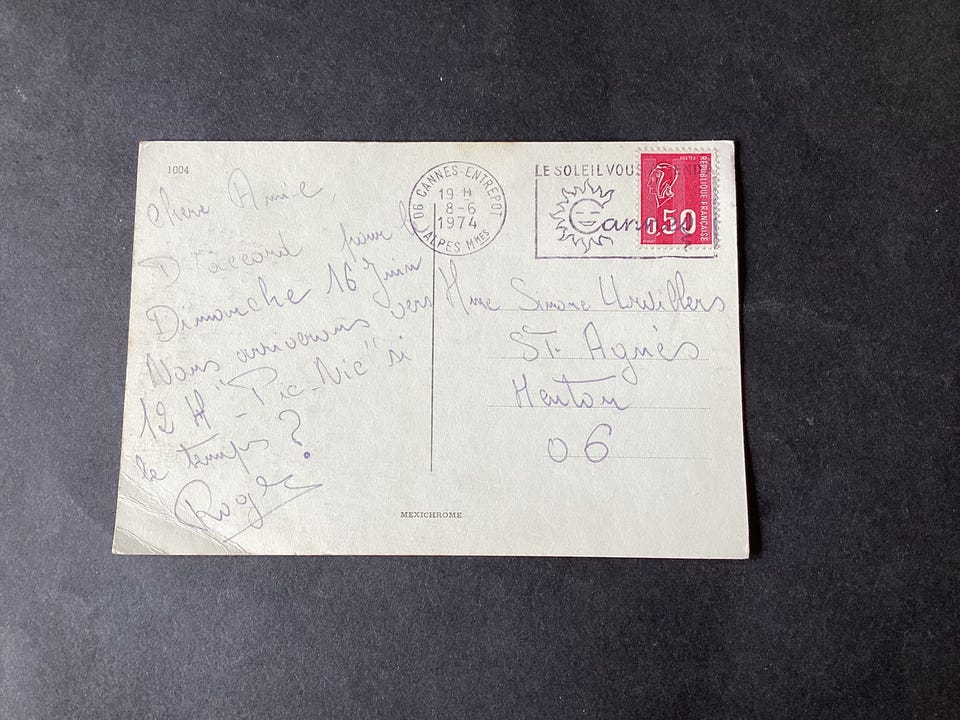 1004
Chère Amie,
D'accord pour le
Dimanche 16 Juin
Nous arriverons vers
12 H "Pic-Nic" si
le temps?
Roger
MEXICHROME
06 CANNES-ENTREPOT
19 H
8-6
1974
ALPES MMES
LE SOLEIL VOUS
Cannes
POSTES
REPUBLIQUE FRANÇAISE
0.50
Mme Simone
St. Agnès
Menton
06